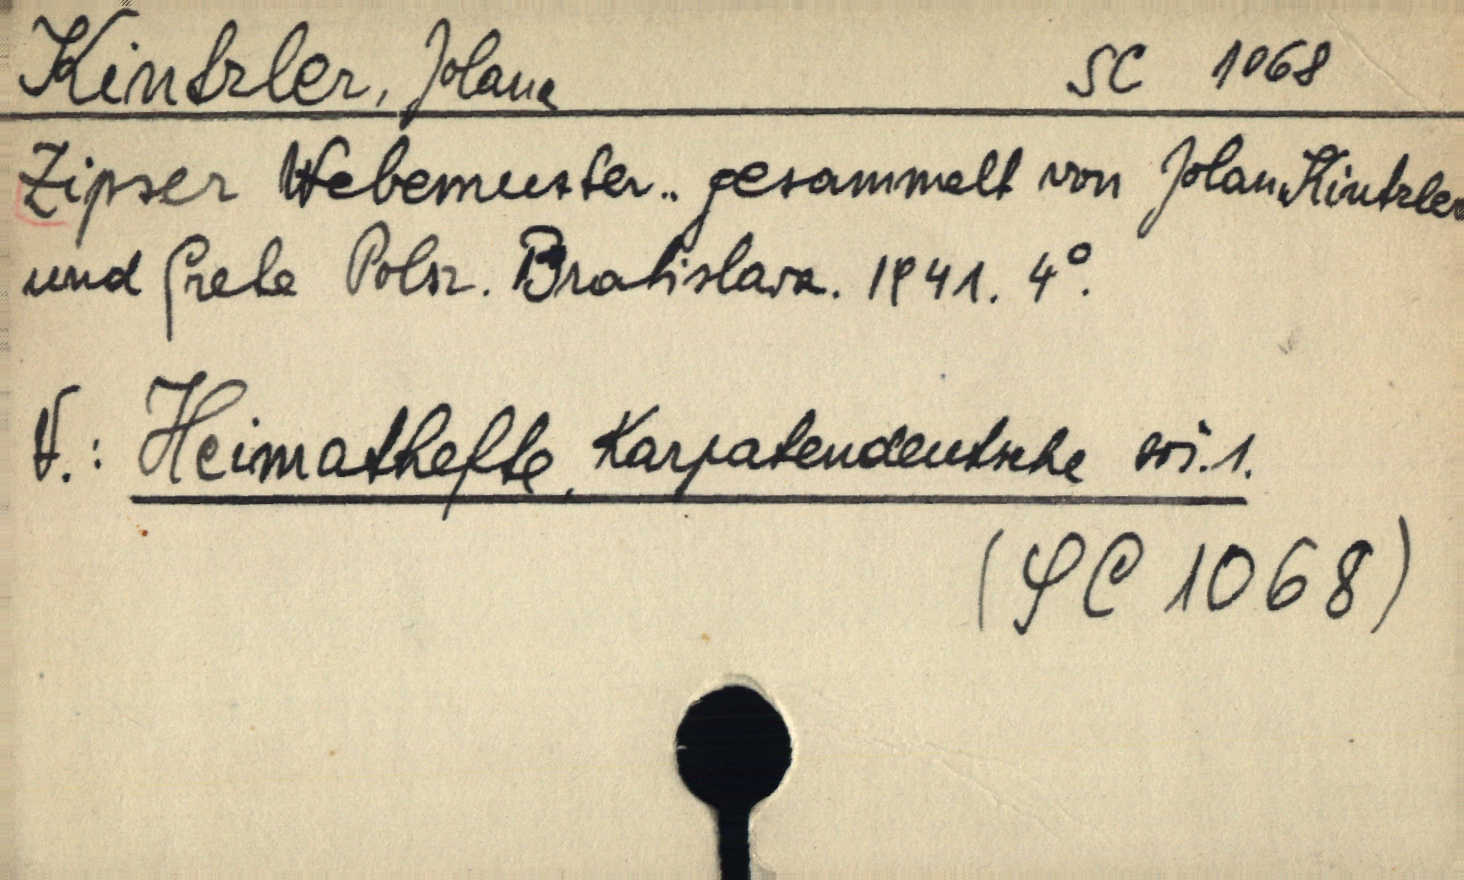 Kintzler, Jolana SC 1068
Zipser Webemuster.. gesammelt von Jolana Kintzler
und Grete Polsz. Bratislava. 1941. 4°.
V.: Heimathefte, Karpatendeutsche 1.
(SC 1068)